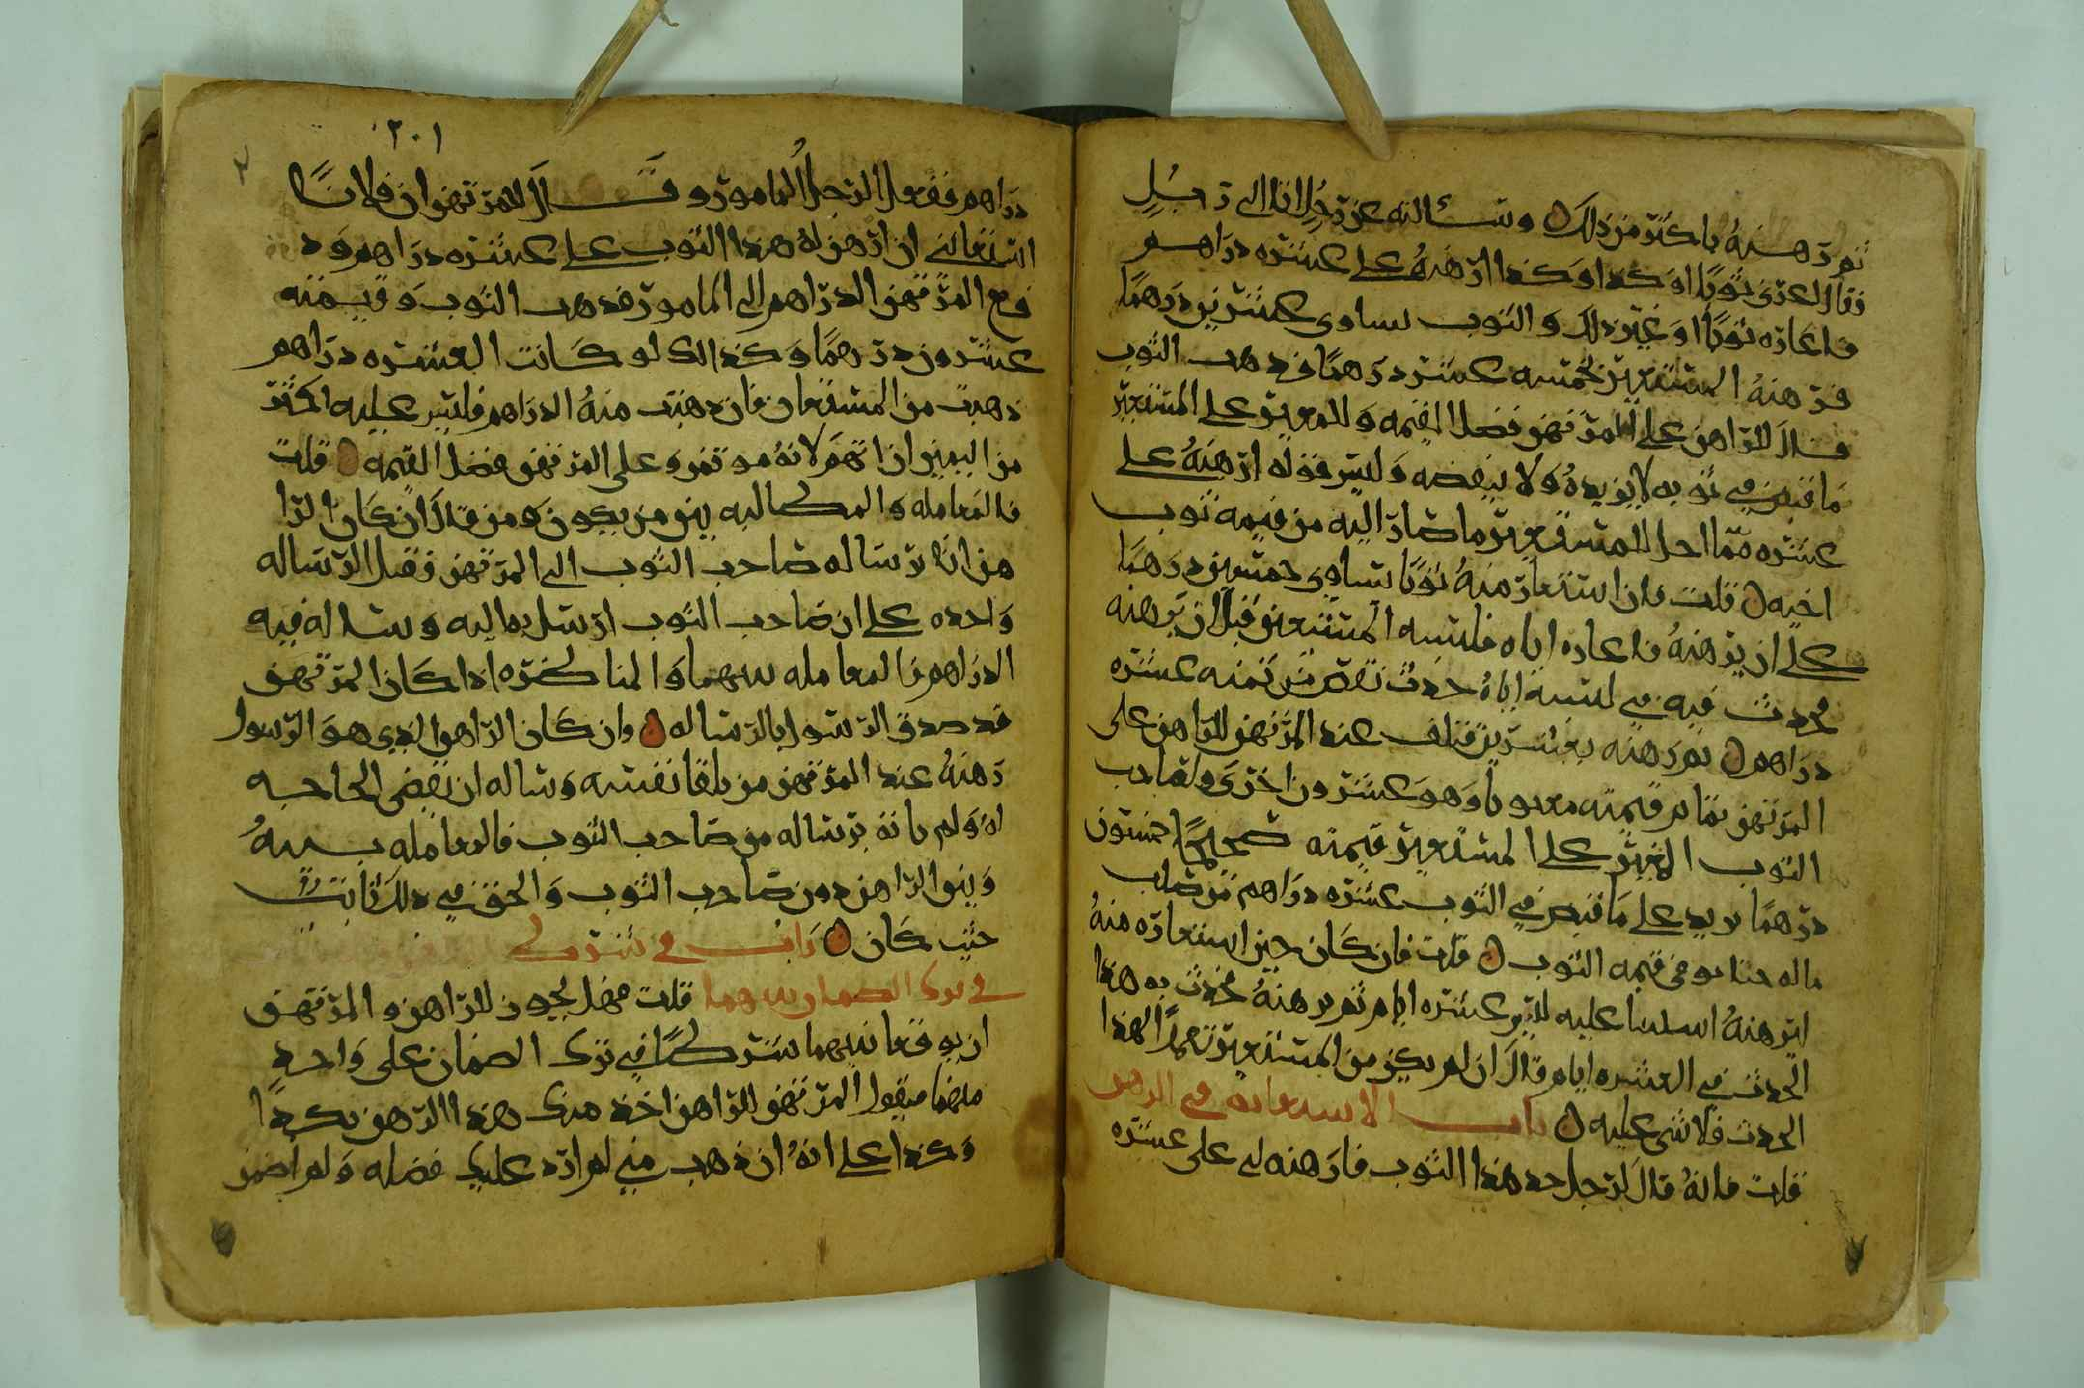 ثم رهنه باكثر من ذلك وسألته عن رجل اتا الى رجل
فقال اعرني ثوبا او كذا وكذا ارهنه على عشره دراهم
فاعاره ثوبا او غير ذلك والثوب يساوى عشرين درهما
فرهنه المستعير بخمسه عشر درهما فذهب الثوب
قال للراهن على المرتهن فضل القيمه وللمعير على المستعير
ما قبض في ثوبه لا يزيده ولا ينقصه وليس قوله ارهنه على
عشره مما احل للمستعير ما صار اليه من قيمه ثوب
اخيه قلت فان استعار منه ثوبا يساوي خمسين درهما
على ان يرهنه فاعاره اياه فلبسه المستعير قبل ان يرهنه
فحدث فيه في لبسه اياه حدث نقص من ثمنه عشره
دراهم ثم رهنه بعشرين فتلف عند المرتهن للراهن على
المرتهن تمام قيمته معيوبا وهو عشرون اخرى ولصاحب
الثوب المعير على المستعير قيمته صحيحا خمسون
درهما يزيد على ما قبض في الثوب عشره دراهم من صلب
ماله حتا يوفي قيمه الثوب قلت فان كان حين استعاره منه
ليرهنه اسلنا عليه للبس عشره ايام ثم يرهنه فحدث به هذا
الحدث في العشره ايام قال ان لم يكن من المستعير تعمدا لهذا
الحدث فلا شي عليه باب الاستعانه في الرهن
قلت فانه قال لرجل خذ هذا الثوب فارهنه لي على عشره
٢٠١
دراهم ففعل الرجل المامور وقال للمرتهن ان فلانا
استعانني ان ارهن له هذا الثوب على عشره دراهم ود
فع المرتهن الدراهم الى المامور فذهب الثوب وقيمته
عشرون درهما وكذالك لو كانت العشره دراهم
ذهبت من المستعان فان ذهبت منه الدراهم فليس عليه اكثر
من اليمين ان اتهم لانه موتمن وعلى المرتهن فضل القيمه قلت
فالمعامله والمطالبه بين من يكون ومن قال ان كان الرا
هن اتا برساله صاحب الثوب الى المرتهن فقبل الرساله
واحده على ان صاحب الثوب ارسل بها اليه وساله فيه
الدراهم فالمعامله بينهما والمناظره اذا كان المرتهن
قد صدق الرسول بالرساله وان كان الراهن الذي هو الرسول
رهنه عند المرتهن من تلقا نفسه وساله ان يقضي الحاجه
له ولم ياته برساله من صاحب الثوب فالمعامله بينه
وبين الراهن دون صاحب الثوب والحق في ذلك ثابت
حيث كان باب في شرط
في ترك الضمان بينهما قلت فهل يجوز للراهن والمرتهن
ان يوقعا بينهما شرطا في ترك الضمان على واحد
منهما فيقول المرتهن للراهن اخذ منك هذا الرهن بكذا
وكذا على انه ان ذهب مني لم ارد عليك فضله ولم اضمن